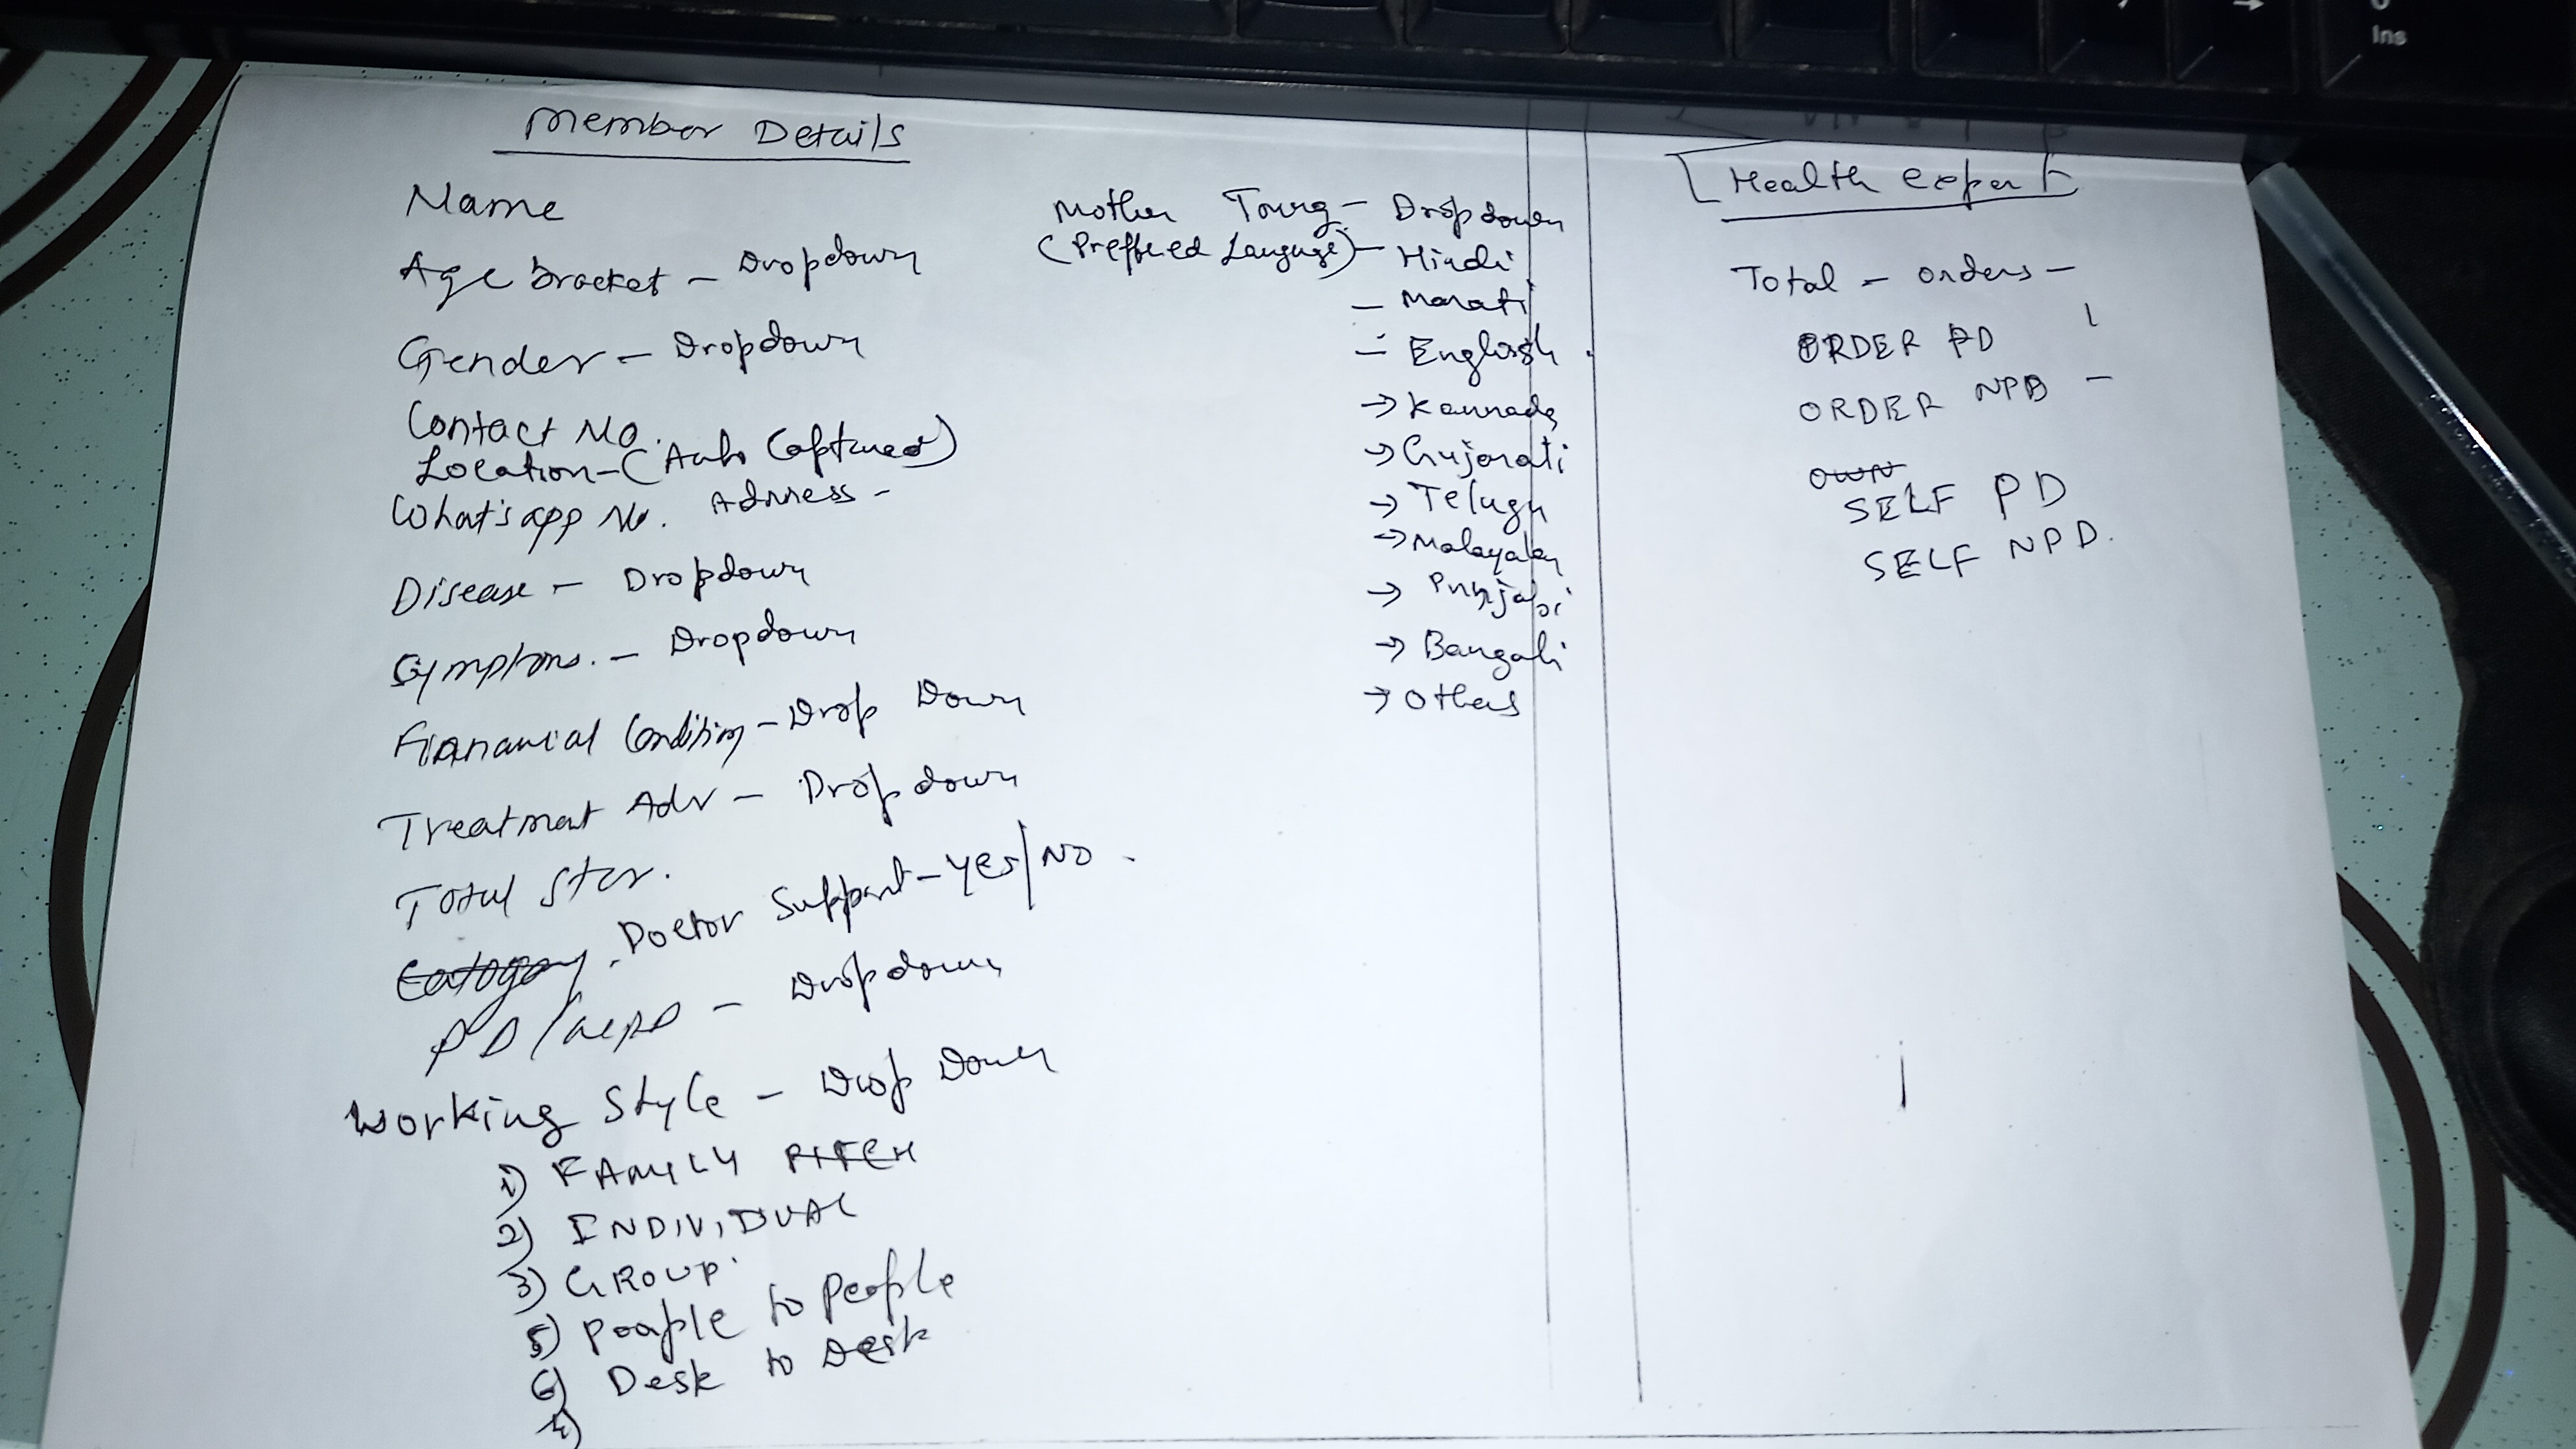 Member Details
Name
Age bracket - Dropdown
Gender - Dropdown
Contact No
Location - (Auto Captured)
What's app No. Adress -
Disease - Dropdown
Symptoms. - Dropdown
Financial Condition - Drop Down
Treatment Adv - Drop down
Total Ster.
Doctor Support - Yes/No -
PD/NPD - Drop down
Working Style - Drop Down
1) FAMILY
2) INDIVIDUAL
3) GROUP
5) People to People
6) Desk to Desk
Mother Toung - Dropdown
(Preffred Language) - Hindi
- Marati
- English
→ Kannada
→ Gujorati
→ Telugu
→ Malayalam
→ Punjabi
→ Bangali
→ Others
Health expert
Total - orders -
ORDER PD
ORDER NPD -
SELF PD
SELF NPD.
Ins